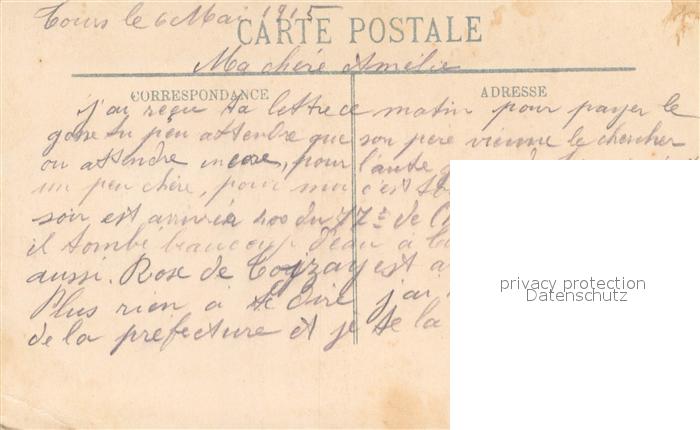 Tours le 6 Mai 1915
CARTE POSTALE
Ma chère Amélie
CORRESPONDANCE
ADRESSE
j'ai reçu ta lettre ce matin pour payer le
gosse tu peu attendre que son père vienne le chercher
ou attendre encore, pour l'autre
un peu chère, pour moi c'est
soir est arrivée 400 du 77e de
il tombé beaucoup d'eau à
aussi. Rose de est
Plus rien à te dire j'ai
de la prefecture et je te la
privacy protection
Datenschutz